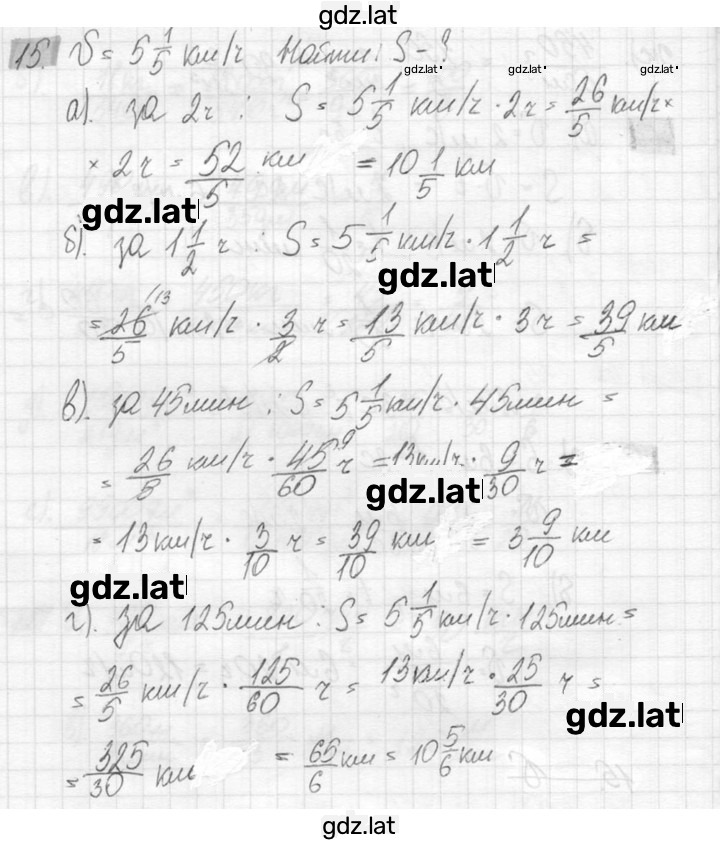 gdz.lat
15. V = 5 1/5 км/ч Найти: S - ?
gdz.lat gdz.lat gdz.lat
а). за 2ч : S = 5 1/5 км/ч · 2ч = 26/5 км/ч ×
× 2ч = 52/5 км = 10 1/5 км
gdz.lat
б). за 1 1/2 ч : S = 5 1/5 км/ч · 1 1/2 ч =
gdz.lat
= 26/5 13 км/ч · 3/2 ч = 13/5 км/ч · 3ч = 39/5 км
в). за 45мин : S = 5 1/5 км/ч · 45мин =
= 26/5 км/ч · 45/60 9 ч = 13км/ч · 9/30 ч =
gdz.lat
= 13км/ч · 3/10 ч = 39/10 км = 3 9/10 км
gdz.lat
г). за 125мин . S = 5 1/5 км/ч · 125мин =
= 26/5 км/ч · 125/60 ч = 13км/ч · 25/30 ч =
gdz.lat
= 325/30 км = 65/6 км = 10 5/6 км
gdz.lat